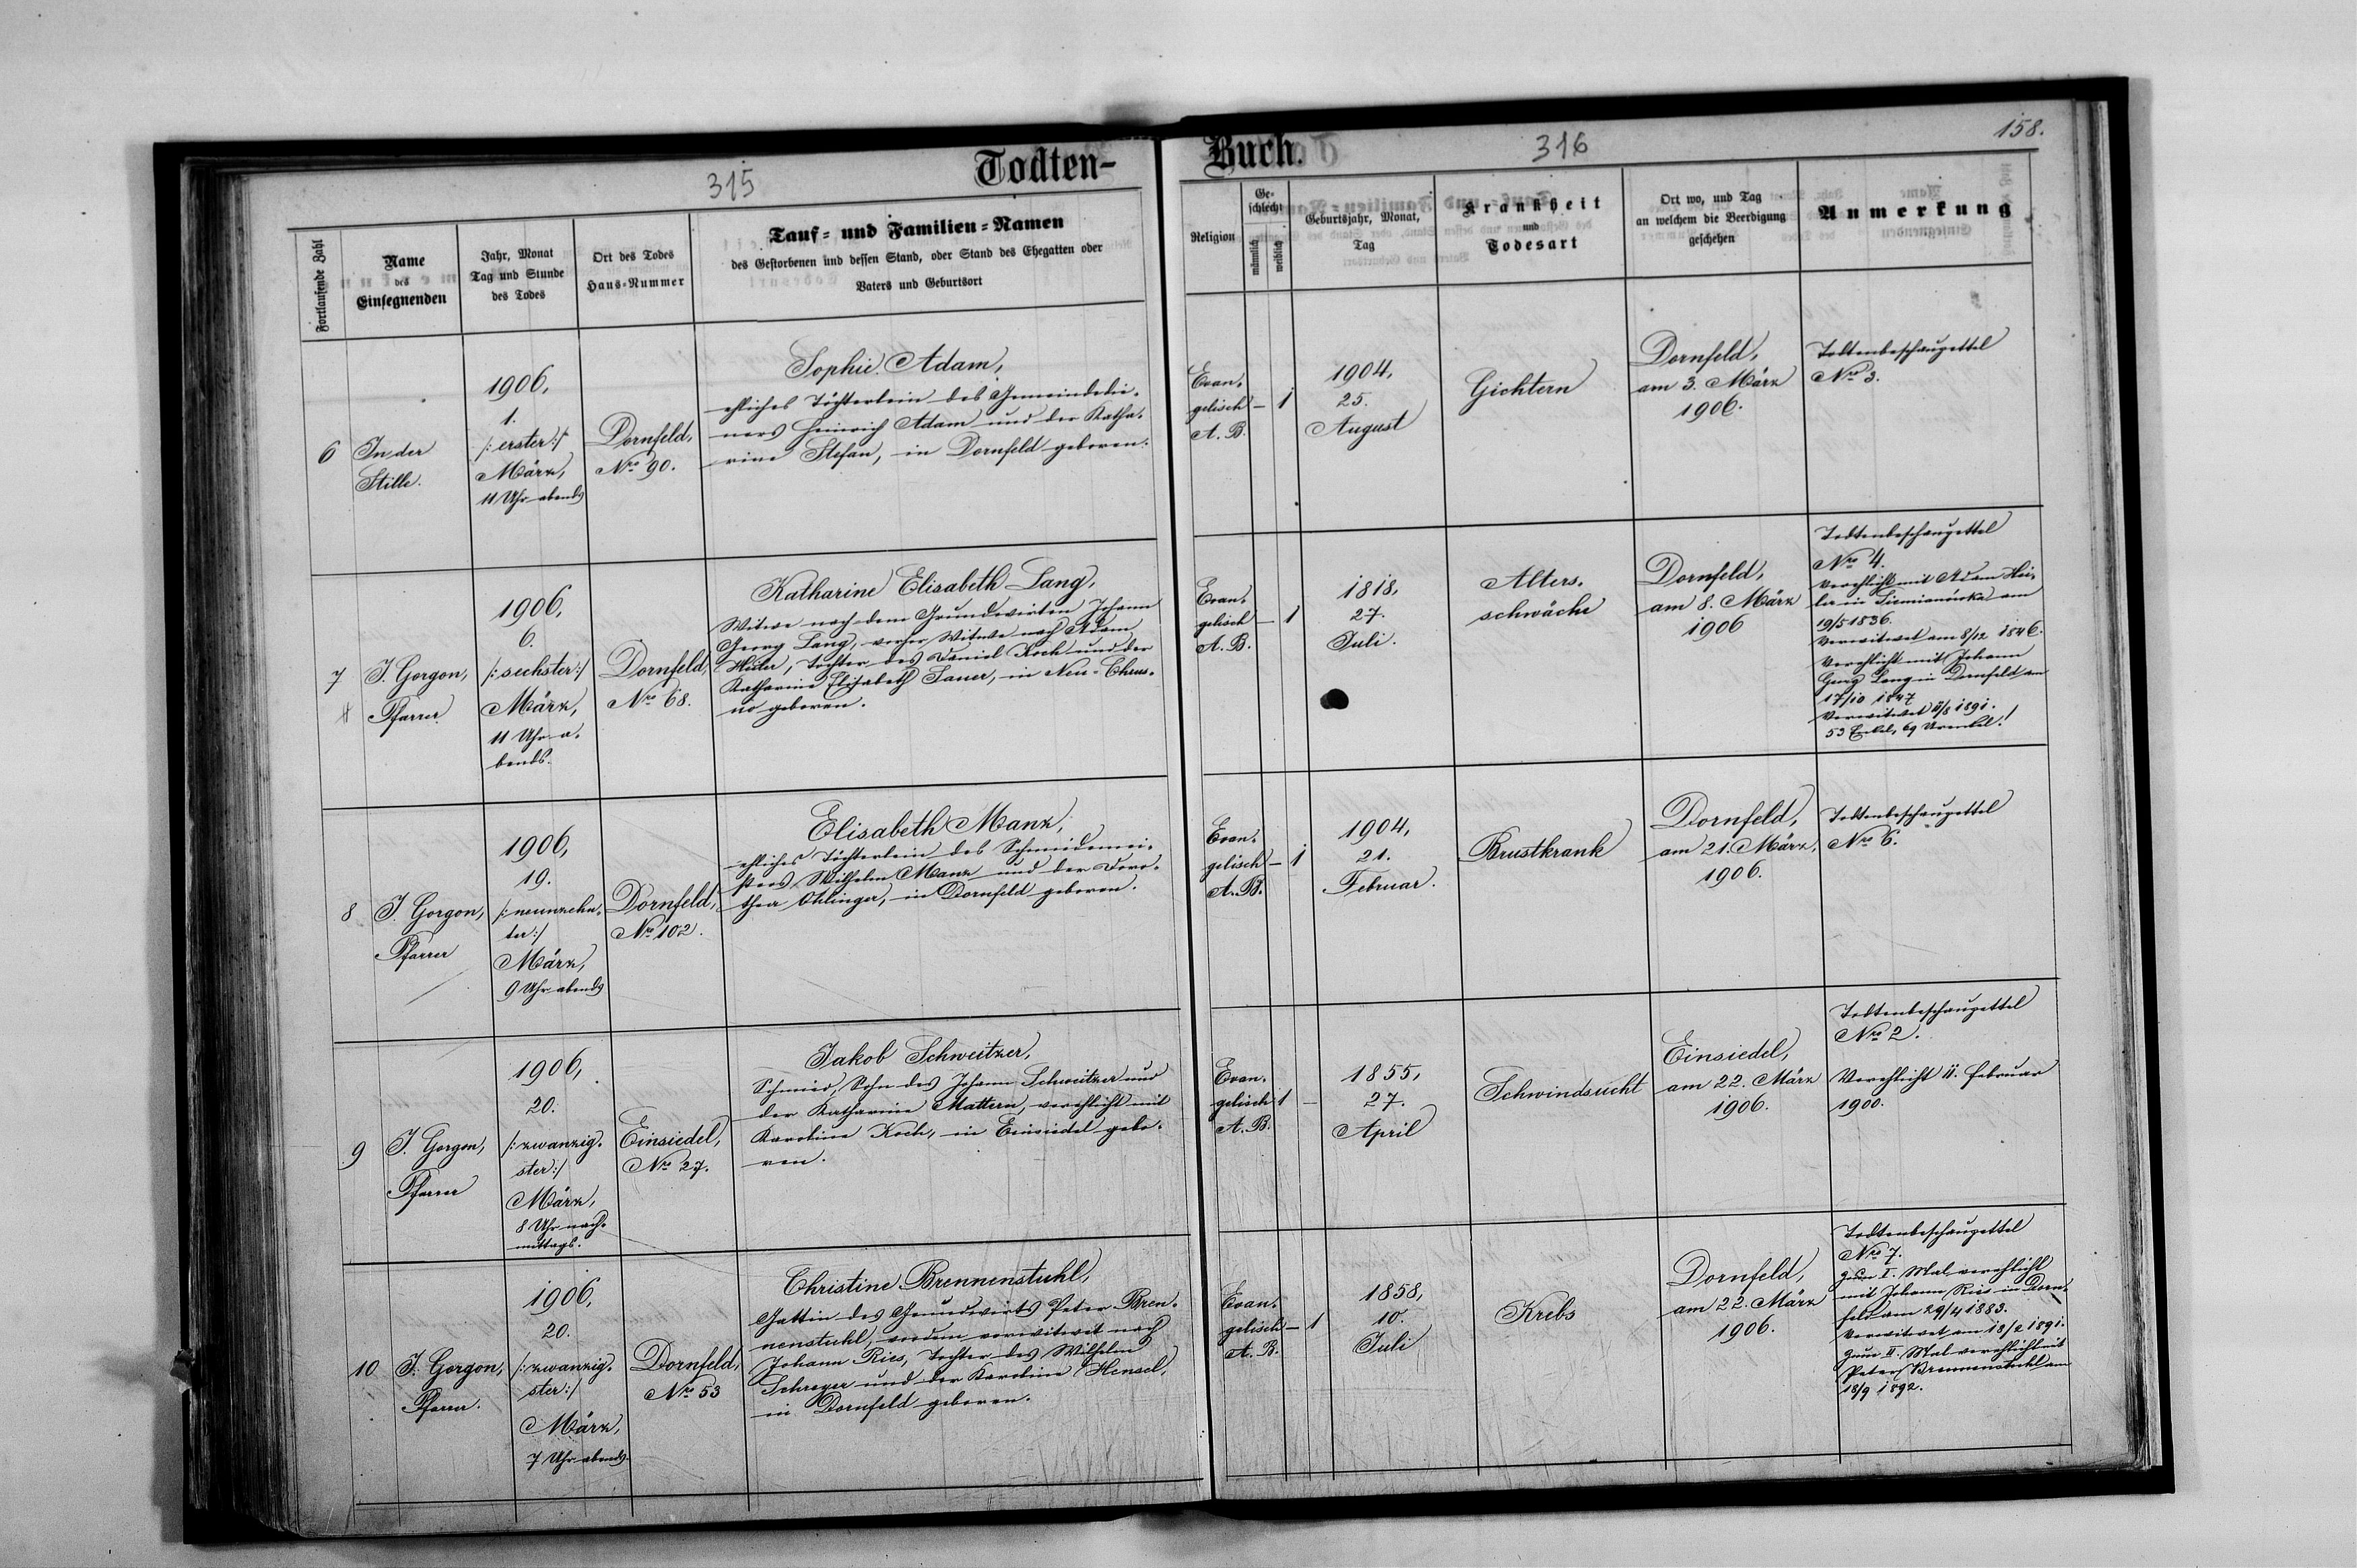 315
Todten-
Buch.
316
158.
Fortlaufende Zahl
Name
des
Einsegnenden
Jahr, Monat
Tag und Stunde
des Todes
Ort des Todes
Haus-Nummer
Tauf- und Familien-Namen
des Gestorbenen und dessen Stand, oder Stand des Ehegatten oder
Vaters und Geburtsort
Religion
Ge-
schlecht
männlich
weiblich
Geburtsjahr, Monat,
Tag
Krankheit
und
Todesart
Ort wo, und Tag
an welchem die Beerdigung
geschehen
Anmerkung
6
In der
Stille.
1906,
1.
/: erster :/
März,
11 Uhr abends
Dornfeld,
Nro 90.
Sophie Adam,
eheliches Töchterlein des Gemeindedie-
ners Heinrich Adam und der Katha-
rina Stefan, in Dornfeld geboren.
Evan-
gelisch
A. B.
– 1
1904,
25.
August
Gichtern
Dornfeld,
am 3. März
1906.
Todtenbeschauzettel
Nro 3.
7
J. Gorgon,
Pfarrer
1906,
6.
/: sechster :/
März,
11 Uhr a-
bends.
Dornfeld,
Nro 68.
Katharine Elisabeth Lang,
Witwe nach dem Grundwirten Johann
Georg Lang, vorher Witwe nach Adam
Heiler, Tochter des Daniel Koch und der
Katharina Elisabeth Sauer, in Neu-Chrus-
no geboren.
Evan-
gelisch
A. B.
– 1
1818,
27.
Juli.
Alters-
schwäche
Dornfeld,
am 8. März
1906
Todtenbeschauzettel
Nro 4.
Verehlicht mit Adam Hei-
ler in Siemianówka am
19/5 1836.
Verwitwet am 8/12 1846.
Verehlicht mit Johann
Georg Lang in Dornfeld am
17/10 1847
Verwitwet 1891.
53 Enkel, 69 Urenkel!
8
J. Gorgon,
Pfarrer
1906,
19.
/: neunzehn-
ter :/
März,
9 Uhr abends
Dornfeld,
Nro 102.
Elisabeth Manz,
eheliches Töchterlein des Schmiedemei-
sters Wilhelm Manz und der Doro-
thea Ohlinger, in Dornfeld geboren.
Evan-
gelisch
A. B.
– 1
1904,
21.
Februar.
Brustkrank
Dornfeld,
am 21. März,
1906.
Todtenbeschauzettel
Nro 6.
9
J. Gorgon,
Pfarrer
1906,
20.
/: zwanzig-
ster :/
März,
8 Uhr nach-
mittags.
Einsiedel,
Nro 27.
Jakob Schweitzer,
Schmied, Sohn des Johann Schweitzer und
der Katharina Mattern, verehlicht mit
Karoline Koch, in Einsiedel gebo-
ren.
Evan-
gelisch
A. B.
1 –
1855,
27.
April
Schwindsucht
Einsiedel,
am 22. März
1906.
Todtenbeschauzettel
Nro 2.
Verehlicht 11. Februar
1900.
10
J. Gorgon,
Pfarrer.
1906,
20.
/: zwanzig-
ster :/
März,
7 Uhr abends
Dornfeld,
Nro 53
Christine Brennenstuhl,
Gattin des Grundwirts Peter Bren-
nenstuhl, vordem verwitwet nach
Johann Ries, Tochter des Wilhelm
Schreyer und der Karoline Hensel,
in Dornfeld geboren.
Evan-
gelisch
A. B.
– 1
1858,
10.
Juli
Krebs
Dornfeld,
am 22. März
1906.
Todtenbeschauzettel
Nro 7.
Zum I. Mal verehlicht
mit Johann Ries in Dorn-
feld am 29/4 1883.
Verwitwet am 18/2 1891.
Zum II. Mal verehlicht mit
Peter Brennenstuhl am
18/9 1892.